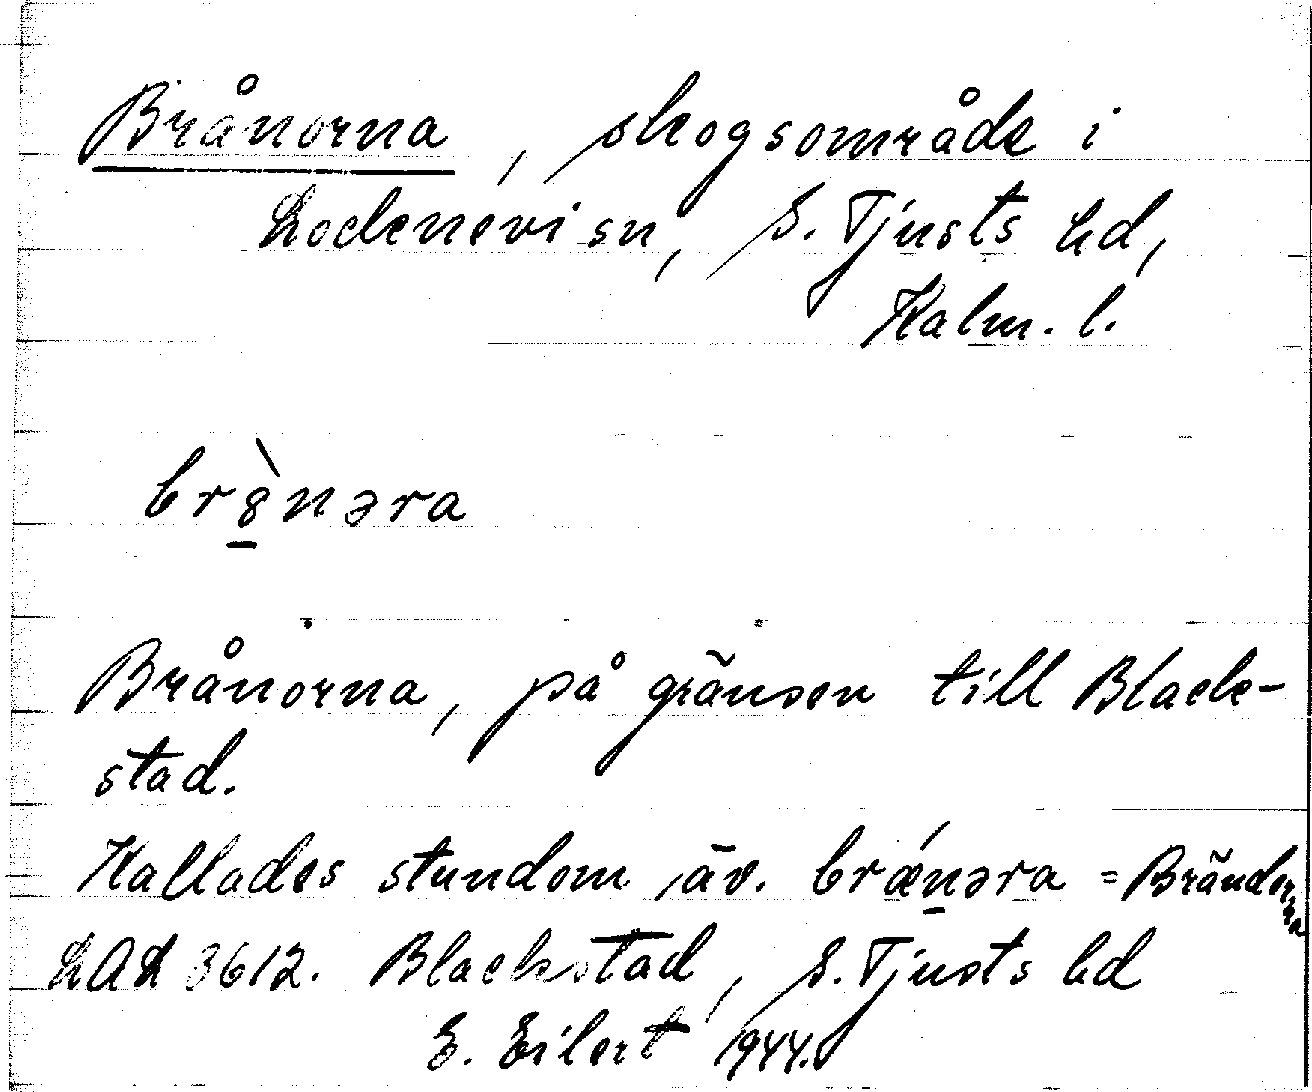 Brånorna, skogsområde i
Locknevi sn, S. Tjusts hd,
Kalm. l.
br8̲̀nəra
Brånorna, på gränsen till Black-
stad.
Kallades stundom äv. brǽn̲əra = Bränderna
LAL 3612. Blackstad, S. Tjusts hd
E. Eilert 1944.